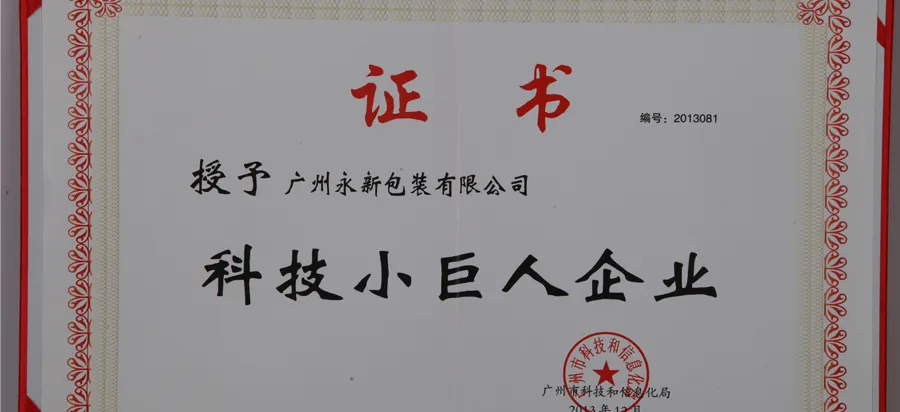 证书
编号：2013081
授予 广州永新包装有限公司
科技小巨人企业
州市科技和信息化
广州市科技和信息化局
2013年12月